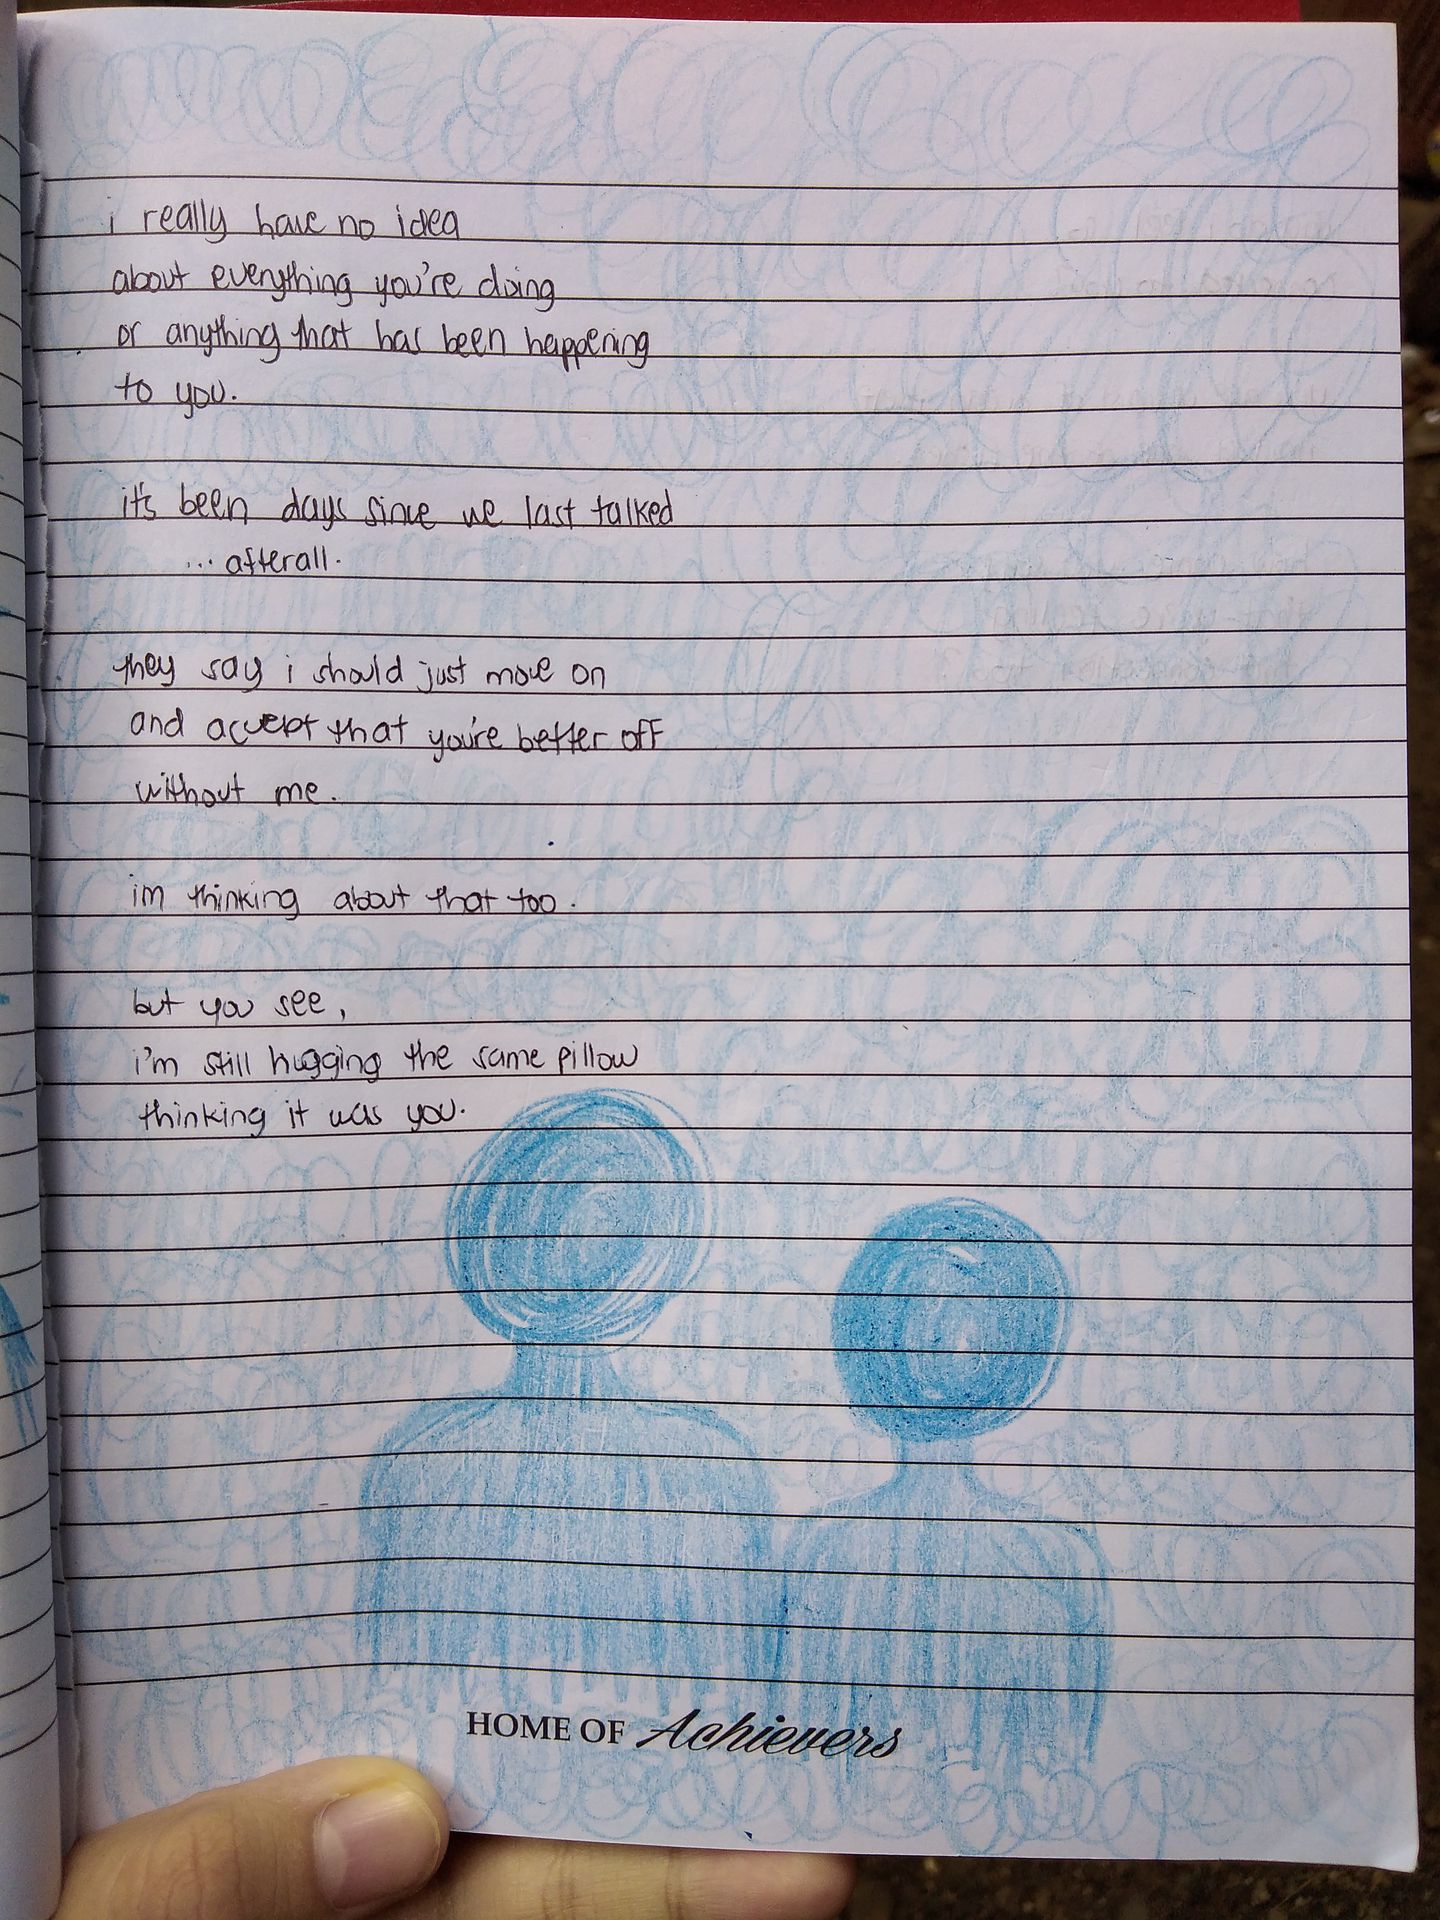 i really have no idea
about everything you're doing
or anything that has been happening
to you.
it's been days since we last talked
... afterall.
they say i should just move on
and accept that you're better off
without me.
im thinking about that too.
but you see,
i'm still hugging the same pillow
thinking it was you.
HOME OF Achievers